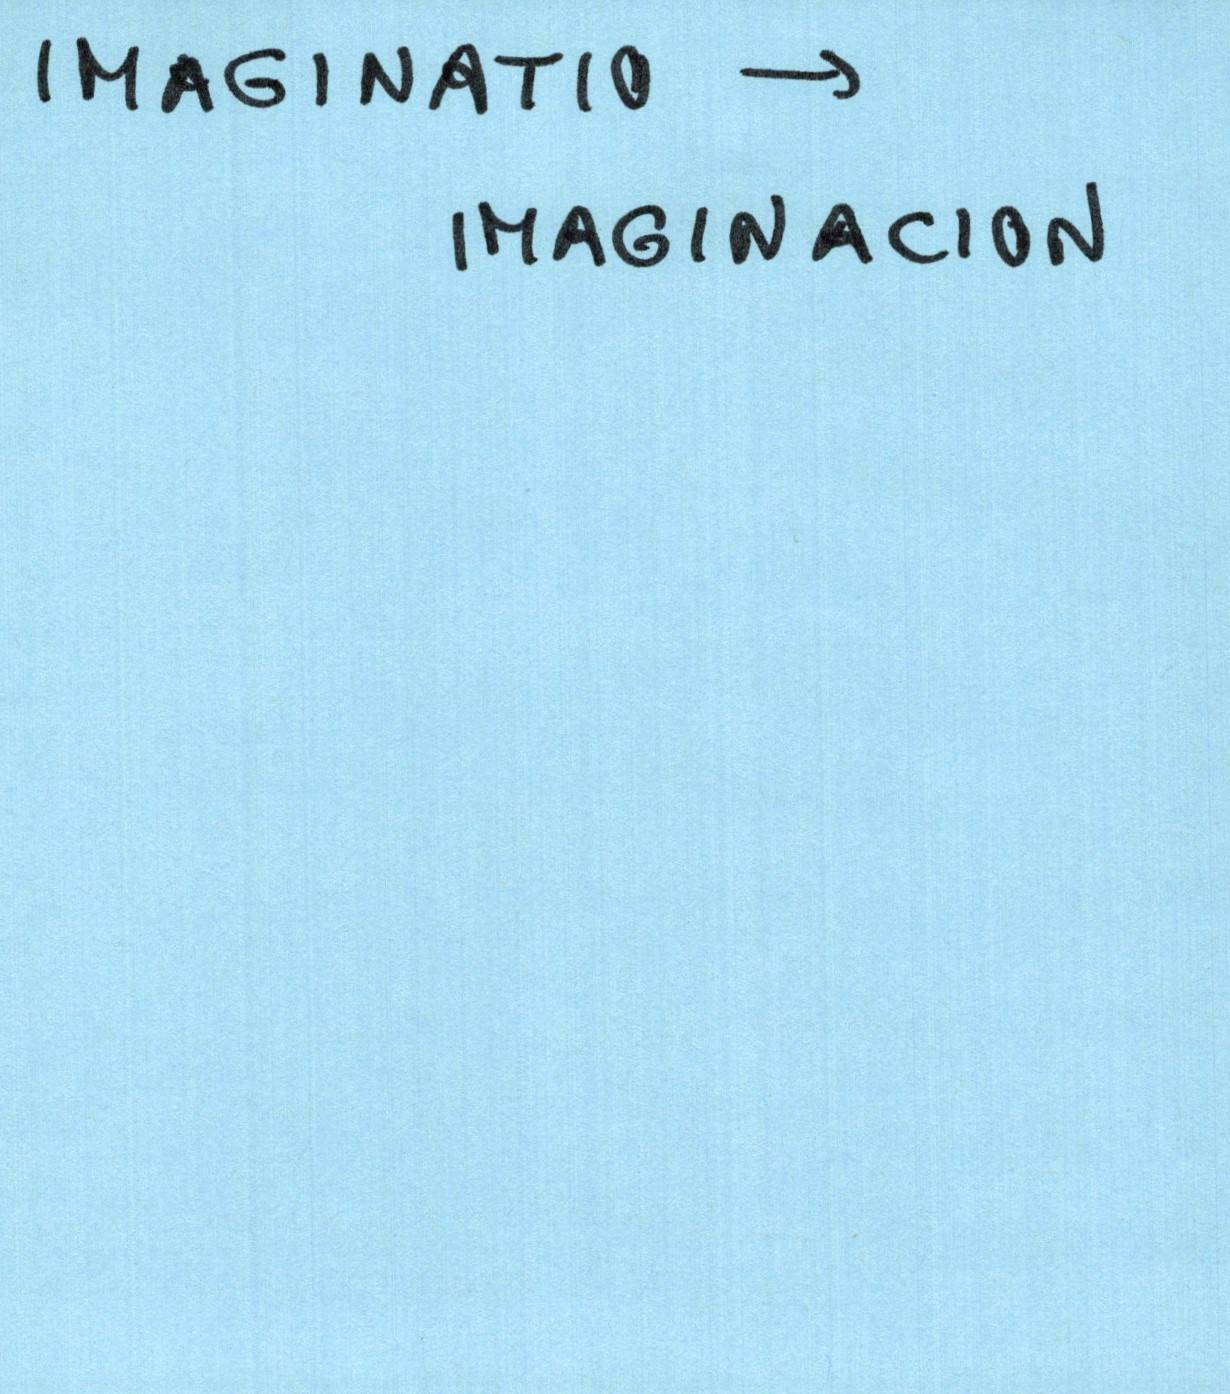 IMAGINATIO →
IMAGINACION